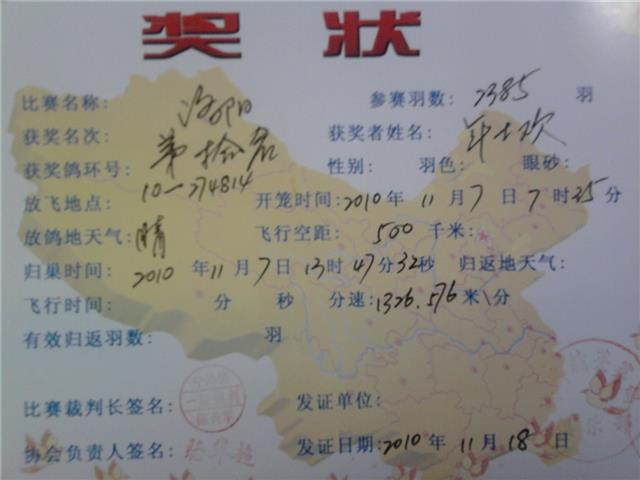 奖状
比赛名称: 洛阳 参赛羽数: 2385 羽
获奖名次: 第拾名 获奖者姓名:
获奖鸽环号: 10-274814 性别: 羽色: 眼砂:
放飞地点: 开笼时间:2010年 11 月 7 日 7 时 25 分
放鸽地天气: 晴 飞行空距: 500 千米:
归巢时间: 2010 年 11 月 7 日 13 时 47 分 32 秒 归返地天气:
飞行时间: 分 秒 分速:1326.576 米\分
有效归返羽数: 羽
比赛裁判长签名: 发证单位:
协会负责人签名: 发证日期:2010 年 11 月 18 日